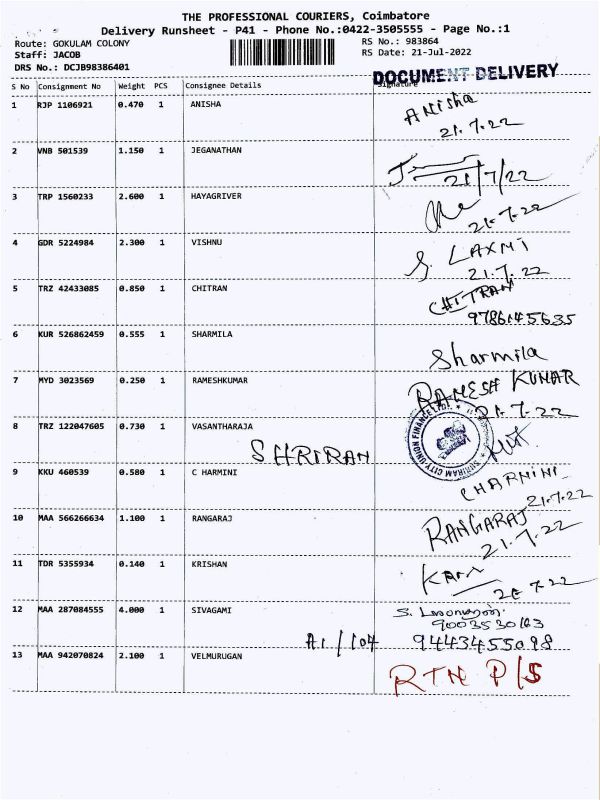 THE PROFESSIONAL COURIERS, Coimbatore
Delivery Runsheet - P41 - Phone No.:0422-3505555 - Page No.:1
Route: GOKULAM COLONY RS No.: 983864
Staff: JACOB RS Date: 21-Jul-2022
DRS No.: DCJB98386401
DOCUMENT DELIVERY
S No Consignment No Weight PCS Consignee Details Signature
1 RJP 1106921 0.470 1 ANISHA Anisha
21.7.22
2 VNB 501539 1.150 1 JEGANATHAN
21/7/22
3 TRP 1560233 2.600 1 HAYAGRIVER
21.7.22
4 GDR 5224984 2.300 1 VISHNU S. LAXMI
21.7.22
5 TRZ 42433085 0.850 1 CHITRAN CHITRAN
9786145635
6 KUR 526862459 0.555 1 SHARMILA Sharmila
7 MYD 3023569 0.250 1 RAMESHKUMAR RAMESH KUMAR
21.7.22
8 TRZ 122047605 0.730 1 VASANTHARAJA
SHRIRAM CITY UNION FINANCE LTD.
SHRIRAN
9 KKU 460539 0.580 1 C HARMINI CHARMINI
21.7.22
10 MAA 566266634 1.100 1 RANGARAJ RANGARAJ
21.7.22
11 TDR 5355934 0.140 1 KRISHAN
7.22
12 MAA 287084555 4.000 1 SIVAGAMI S.
A1/104 9443455098
13 MAA 942070824 2.100 1 VELMURUGAN RTN P/S